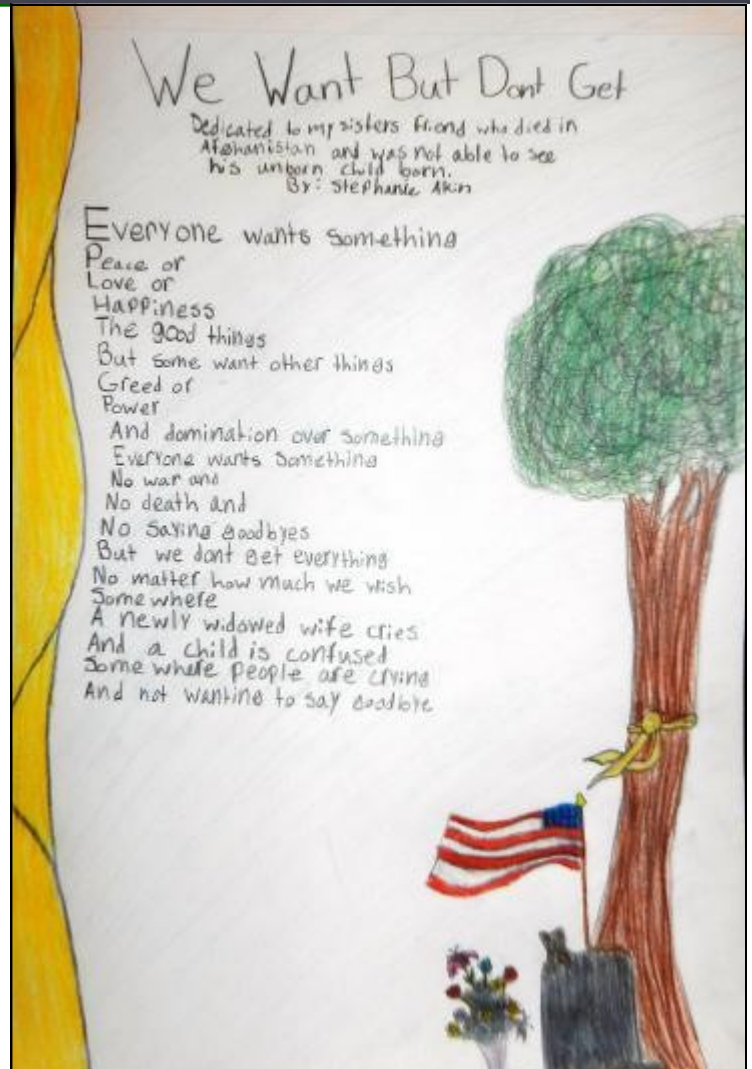 We Want But Dont Get
Dedicated to my sisters friend who died in
Afghanistan and was not able to see
his unborn child born.
By: Stephanie Akin
Everyone wants something
Peace or
Love or
Happiness
The good things
But some want other things
Greed or
Power
And domination over something
Everyone wants something
No war and
No death and
No saying goodbyes
But we dont get everything
No matter how much we wish
Somewhere
A newly widowed wife cries
And a child is confused
Some where people are crying
And not wanting to say goodbye